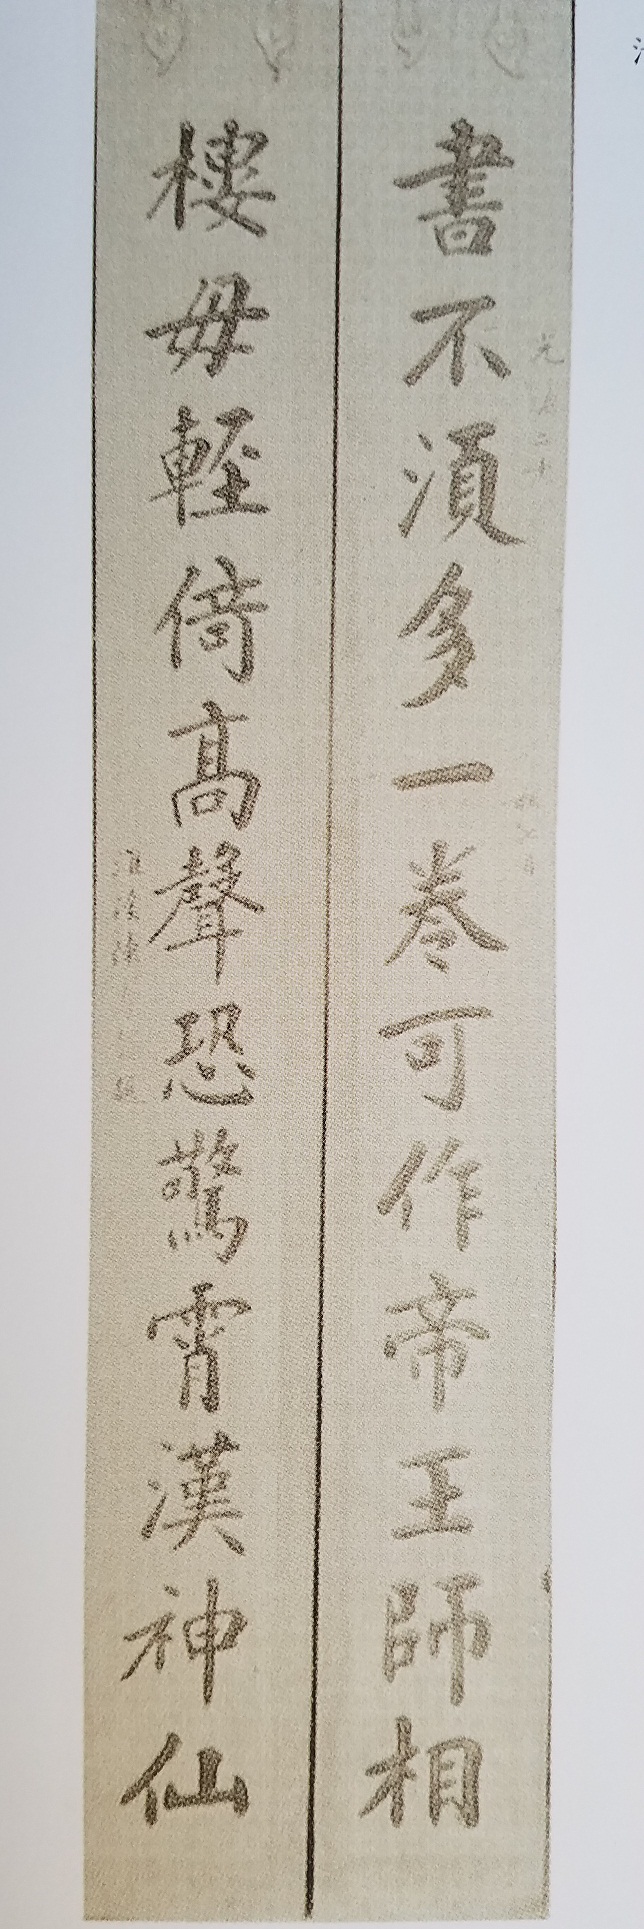 書不須多一卷可作帝王師相
樓毋輕倚高聲恐驚霄漢神仙